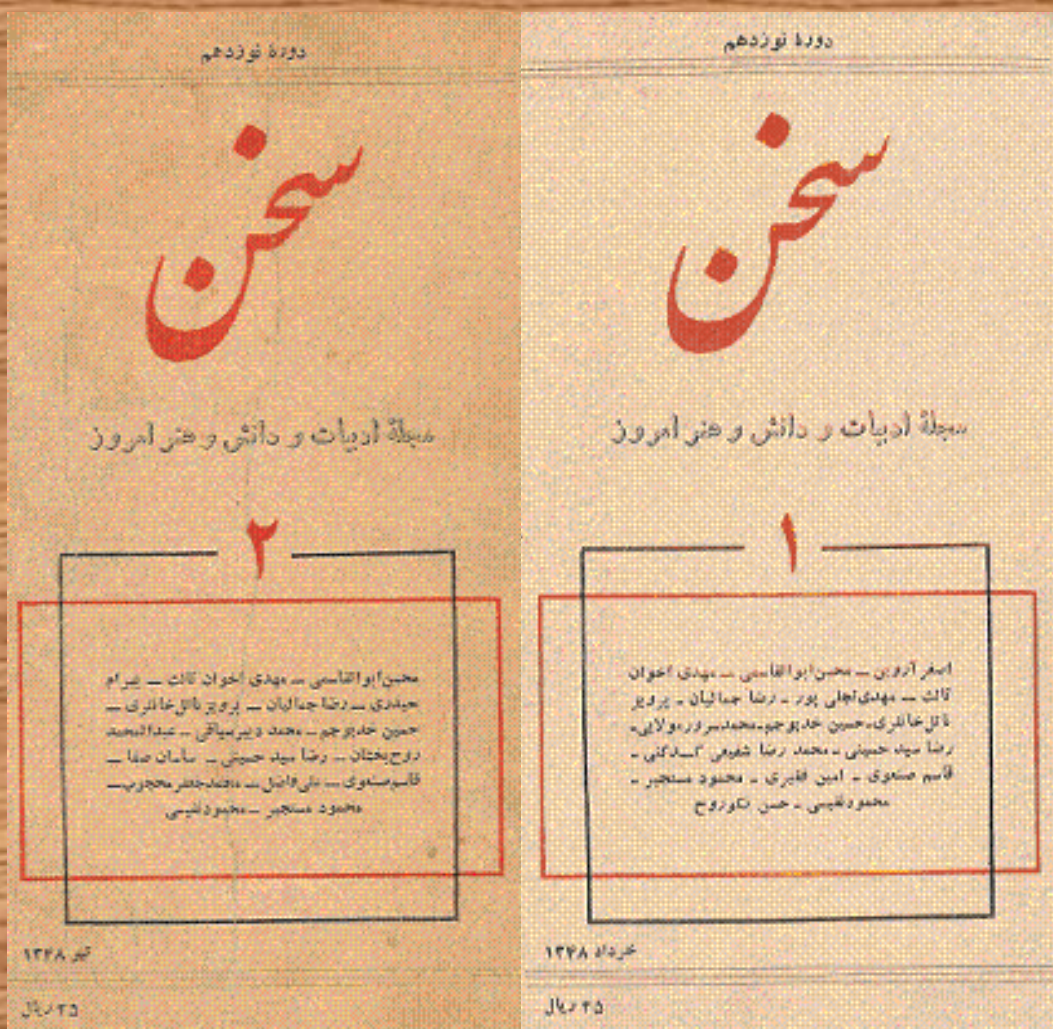 دورهٔ نوزدهم
سخن
مجلهٔ ادبیات و دانش و هنر امروز
۱
اصغر آروین ــ محسن ابوالقاسمی ــ مهدی اخوان
ثالث ــ مهدی تجلی پور ـ رضا جمالیان ـ پرویز
ناتل خانلری ـ حسین خدیوجم ـ محمد سرور مولایی ـ
رضا سید حسینی ـ محمد رضا شفیعی کـدکنی ـ
قاسم صنعوی ـ امین فقیری ـ محمود مستجیر ـ
محمود نفیسی ـ حسن نکوروح
خرداد ۱۳۴۸
۲۵ ریال
دورهٔ نوزدهم
سخن
مجلهٔ ادبیات و دانش و هنر امروز
۲
محسن ابوالقاسمی ــ مهدی اخوان ثالث ــ بهرام
حیدری ــ رضا جمالیان ــ پرویز ناتل خانلری ــ
حسین خدیوجم ــ محمد دبیرسیاقی ــ عبدالمحمد
روح‌بخشان ــ رضا سید حسینی ــ ساسان صفا ــ
قاسم صنعوی ــ علی فاضل ــ محمدجعفر محجوب ــ
محمود مستجیر ــ محمود نفیسی
تیر ۱۳۴۸
۲۵ ریال